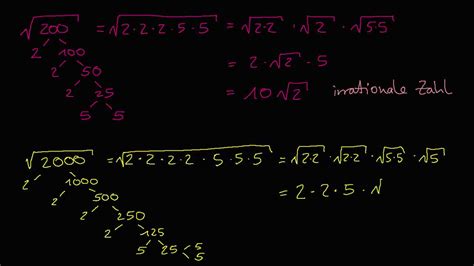 √200 = √2·2·2·5·5 = √2·2 · √2 · √5·5
2 100 = 2·√2·5
2 50
2 25 = 10√2 irrationale Zahl
5 5
√2000 = √2·2·2·2·5·5·5 = √2·2 · √2·2 · √5·5 · √5
2 1000 = 2·2·5·√
2 500
2 250
2 125
5 25 5
5